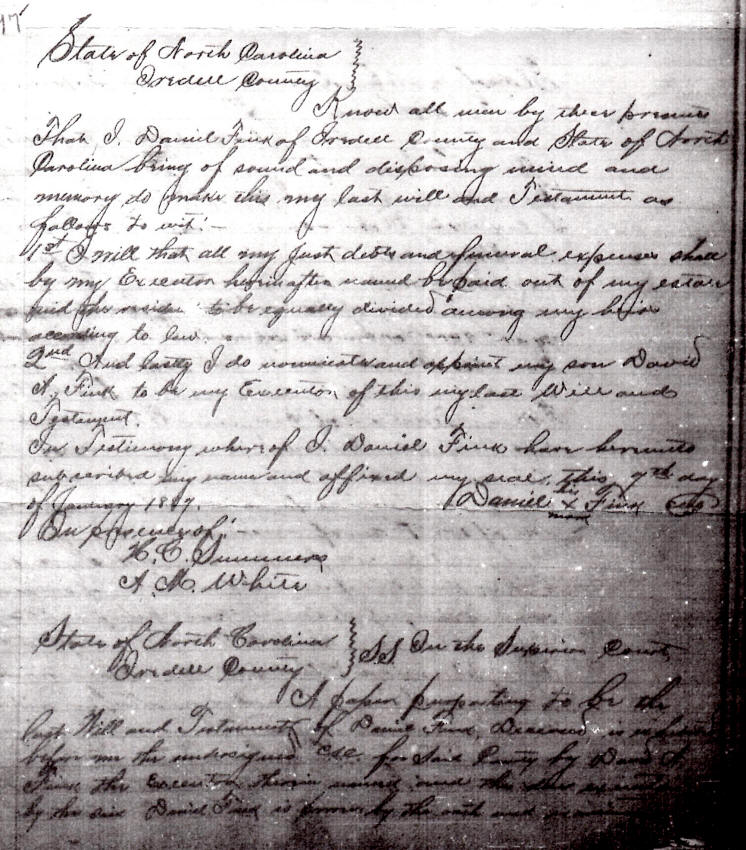 State of North Carolina
Iredell County
Know all men by these presents
That I, Daniel Fink of Iredell County and State of North
Carolina being of sound and disposing mind and
memory do make this my last will and Testament as
follows to wit:—
1st I will that all my just debts and funeral expenses shall
by my Executor hereinafter named be paid out of my estate
and the residue to be equally divided among my heirs
according to law.
2nd And lastly I do nominate and appoint my son David
A. Fink to be my Executor of this my last Will and
Testament.
In Testimony whereof I, Daniel Fink have hereunto
subscribed my name and affixed my seal, this 7th day
of January
Daniel his x mark Fink
In presence of:—
H. C. Summers
A. M. White
State of North Carolina
Iredell County
S.S. In the Superior Court
A paper purporting to be the
last Will and Testament of Daniel Fink, Deceased, is
before me the undersigned CSC for said County by David A.
Fink the Executor therein named and the due
by the said Daniel Fink is proven by the oath and